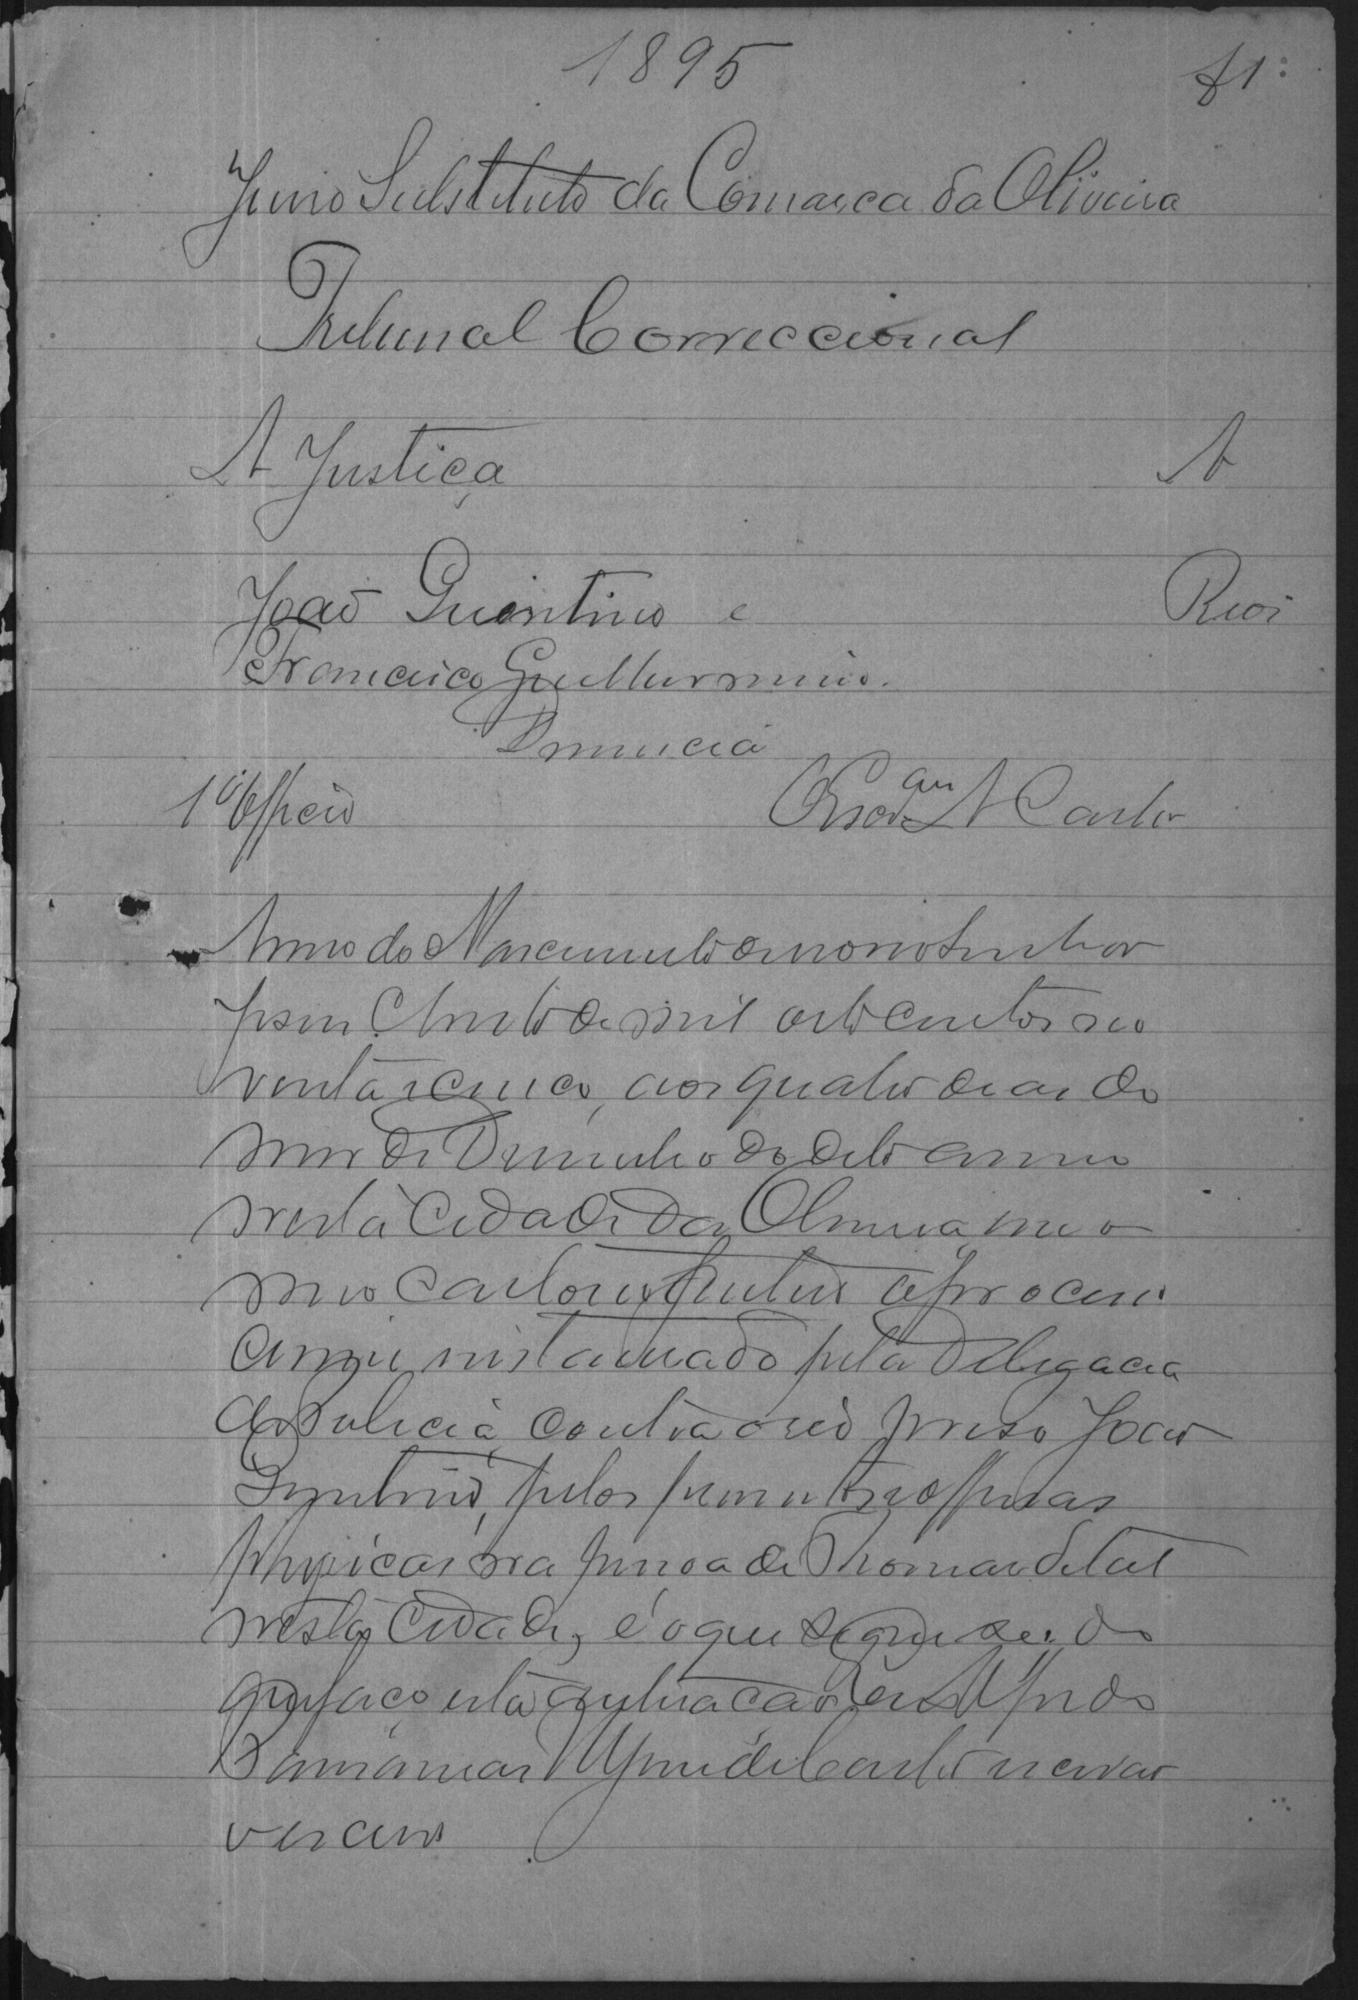 1895
f1:
Juizo Substituto da Comarca da Oliveira
Tribunal Correccional
A Justiça A
João Quintino e Reos
Francisco Guilhermino.
Denuncia
1º Officio Escr.am A Castro
Anno do Nascimento de nosso Senhor
Jesus Christo de mil oito centos no
venta e cinco, aos quatro dias do
mes de Dezembro do dito anno
nesta Cidade da Oliveira em o
meo Cartorio autuei o processo
crime instaurado pela Delegacia
de Policia contra o reo preso João
Quintino, pelos ferimentos offensas
physicas na pessoa de Thomas de tal
nesta Cidade, e o que segue se: do
que faço esta autuação. Eu
de Castro escrivão